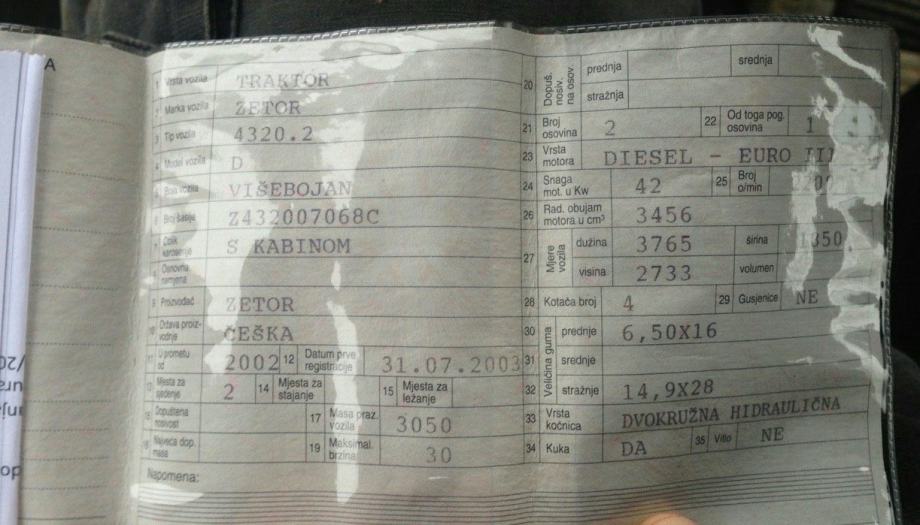 A
1 Vrsta vozila TRAKTOR
2 Marka vozila ZETOR
3 Tip vozila 4320.2
4 Model vozila D
5 Boja vozila VIŠEBOJAN
6 Broj šasije Z432007068C
7 Oblik karoserije S KABINOM
8 Osnovna namjena
9 Proizvođač ZETOR
10 Država proiz-vodnje ČEŠKA
11 U prometu od 2002 12 Datum prve registracije 31.07.2003
13 Mjesta za sjedenje 2 14 Mjesta za stajanje 15 Mjesta za ležanje
16 Dopuštena nosivost 17 Masa praz. vozila 3050
18 Najveća dop. masa 19 Maksimal. brzina 30
Napomena:
20 Dopuš. nosiv. na osov. prednja srednja
stražnja
21 Broj osovina 2 22 Od toga pog. osovina 1
23 Vrsta motora DIESEL - EURO III
24 Snaga mot. u Kw 42 25 Broj o/min
26 Rad. obujam motora u cm³ 3456
27 Mjere vozila dužina 3765 širina 1350
visina 2733 volumen
28 Kotača broj 4 29 Gusjenice NE
30 Veličina guma prednje 6,50X16
31 srednje
32 stražnje 14,9X28
33 Vrsta kočnica DVOKRUŽNA HIDRAULIČNA
34 Kuka DA 35 Vitlo NE